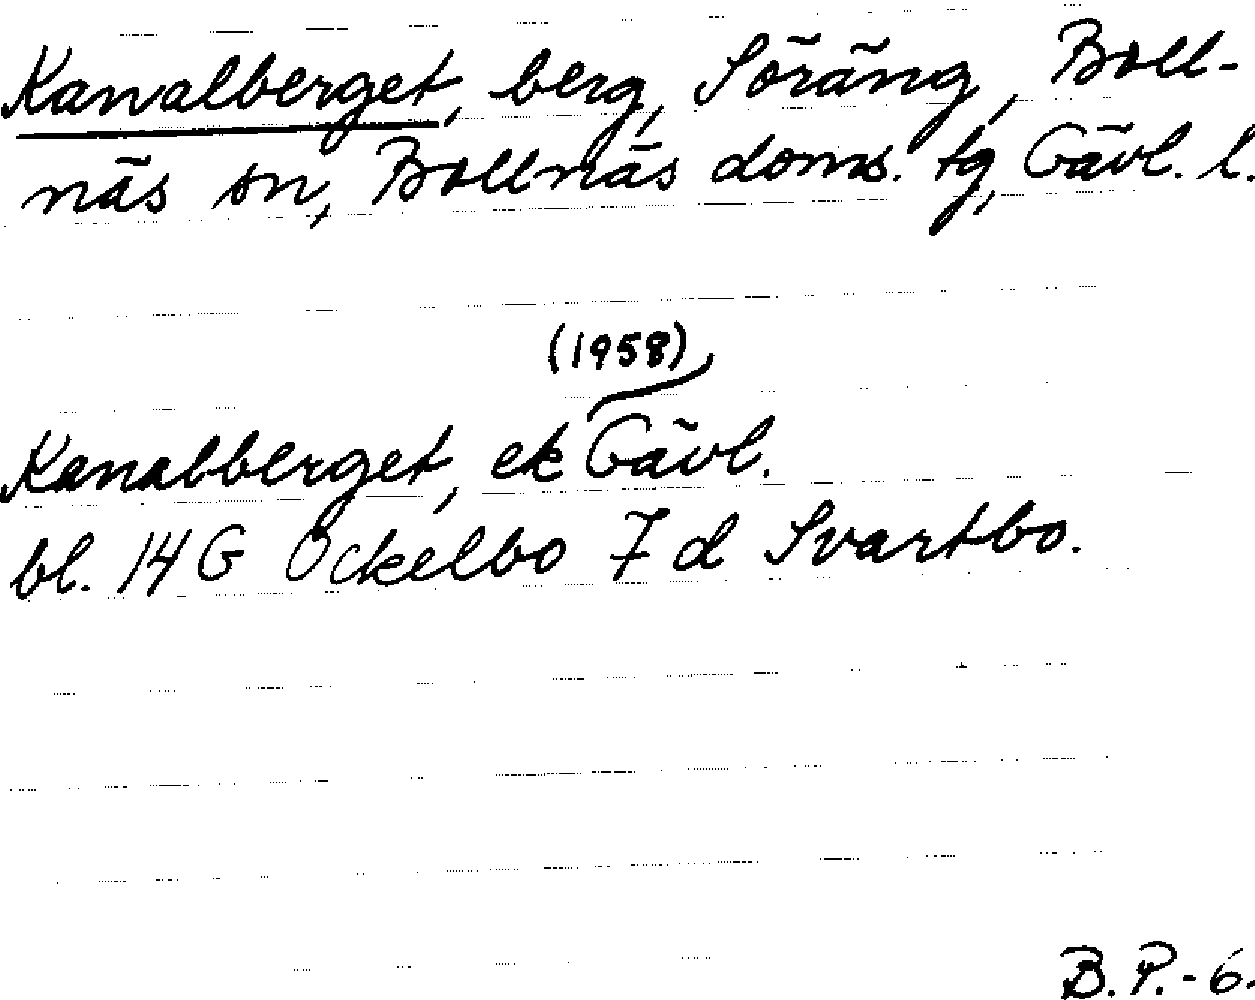 Kanalberget, berg, Söräng, Boll-
näs sn, Bollnäs doms. tg, Gävl. l.
(1958)
Kanalberget, ek Gävl.
bl. 14 G Ockelbo 7 d Svartbo.
B.P.-6.